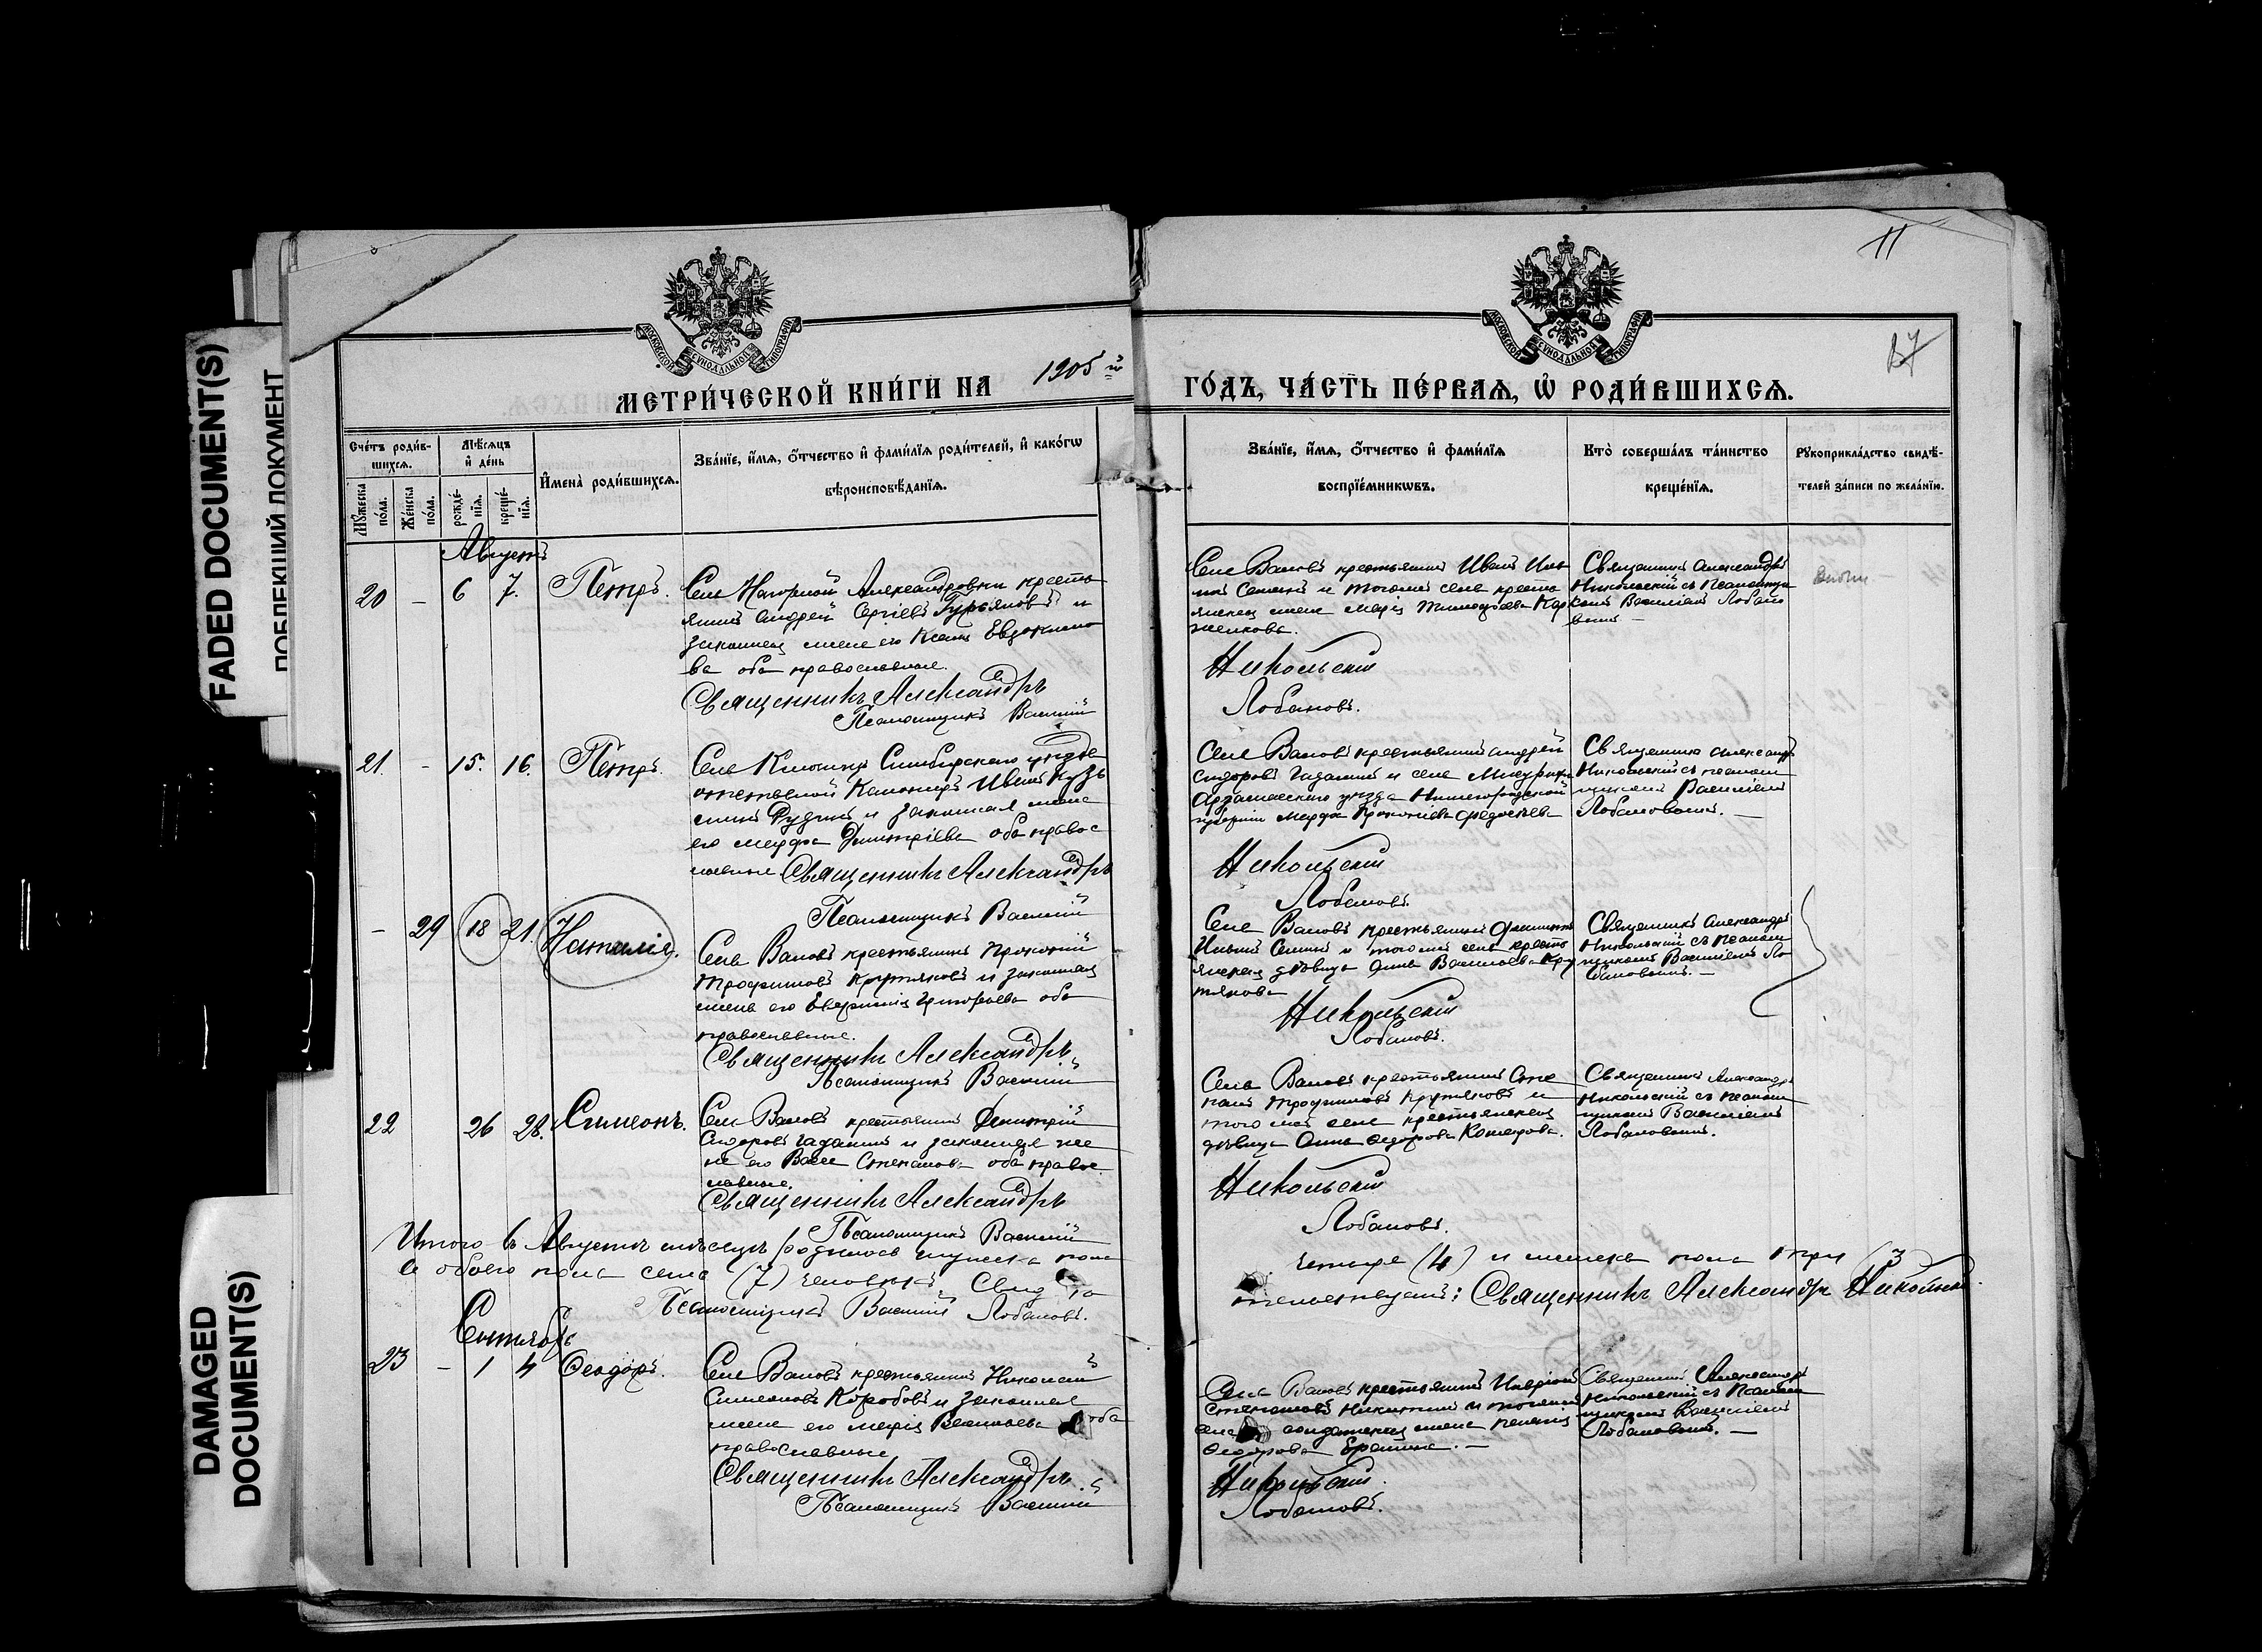 FADED DOCUMENT(S)
DAMAGED
DOCUMENT(S)
11
МОСКОВСКОЙ СѴНОДАЛЬНОЙ ТИПОГРАФІИ
МОСКОВСКОЙ СѴНОДАЛЬНОЙ ТИПОГРАФІИ
МЕТРИ́ЧЕСКОЙ КНИ́ГИ НА 1905 й
ГО́ДЪ, ЧА́СТЬ ПЕ́РВАЯ, Ѡ РОДИ́ВШИХСЯ.
Сче́тъ роди́в-
шихся.
Мѣ́сяцъ
и де́нь
Мꙋ́жеска
по́ла.
Же́нска
по́ла.
рожде́-
нія.
креще́-
нія.
Имена̀ роди́вшихся.
Зва́ніе, и́мя, о́тчество и фами́лія роди́телей, и како́гѡ
вѣроисповѣ́данія.
Зва́ніе, и́мя, о́тчество и фами́лія
воспріе́мникѡвъ.
Кто̀ соверша́лъ та́инство
креще́нія.
Рꙋкоприкла́дство свидѣ́-
телей за́писи по жела́нію.
Августъ
20 - 6 7. Петръ.
Села Нагорной Александровки кресть
янинъ Андрей Сергіевъ Гурьяновъ и
законная жена его Ксенія Евдокимо
ва оба православные.
Священникъ Александръ
Псаломщикъ Василій
Села Валовъ крестьянинъ Иванъ
и тогоже села кресть
янская жена Марія Тимофеева Кар
Никольскій
Лобановъ.
Священникъ Александръ
Никольскій съ псаломщи
комъ Василіемъ Лобано
вымъ —
21. - 15. 16. Петръ.
Села Симбирскаго уѣзда
Иванъ Кузь
минъ и законная жена
его Марфа Димитріева оба правос
лавные Священникъ Александръ
Псаломщикъ Василій
Села Валовъ крестьянинъ Андрей
Сидоровъ и села
Арзамасскаго уѣзда Нижегородской
губерніи Марфа Прокопіева Федосеева
Никольскій
Лобановъ.
Священникъ Александръ
Никольскій съ псалом
щикомъ Василіемъ
Лобановымъ. —
- 29 18 21. Наталія.
Села Валовъ крестьянинъ Прокопій
Трофимовъ Кружковъ и законная
жена его Евфимія Григорьева оба
православные.
Священникъ Александръ
Псаломщикъ Василій
Села Валовъ крестьянинъ
и тогоже села кресть
янская дѣвица Анна Васильева
Никольскій
Лобановъ.
Священникъ Александръ
Никольскій съ псалом
щикомъ Василіемъ Ло
бановымъ. —
22 26 28. Симеонъ.
Села Валовъ крестьянинъ Димитрій
Сидоровъ и законная же
на его Васса Степанова оба правос
лавные.
Священникъ Александръ
Псаломщикъ Василій
Села Валовъ крестьянинъ Сте
панъ Трофимовъ Кружковъ и
тогоже села крестьянская
дѣвица Анна Федорова
Никольскій
Лобановъ.
Священникъ Александръ
Никольскій съ псалом
щикомъ Василіемъ
Лобановымъ.
Итого въ Августѣ мѣсяцѣ родилось мужска пола
четыре (4) и женска пола три (3
а обоего пола семь (7) человѣкъ. Свидѣ
тельствуютъ: Священникъ Александръ Никольскій
Псаломщикъ Василій Лобановъ.
Сентябрь
23 - 1 4 Ѳеодоръ.
Села Валовъ крестьянинъ Николай
Симеоновъ Коробовъ и законная
жена его Марія Васильева оба
православные
Священникъ Александръ
Псаломщикъ Василій
Села Валовъ крестьянинъ
Степановъ Никитинъ и тогоже
села солдатская жена Пелагія
Ѳеодорова —
Никольскій
Лобановъ.
Священникъ Александръ
Никольскій съ псалом
щикомъ Василіемъ
Лобановымъ. —